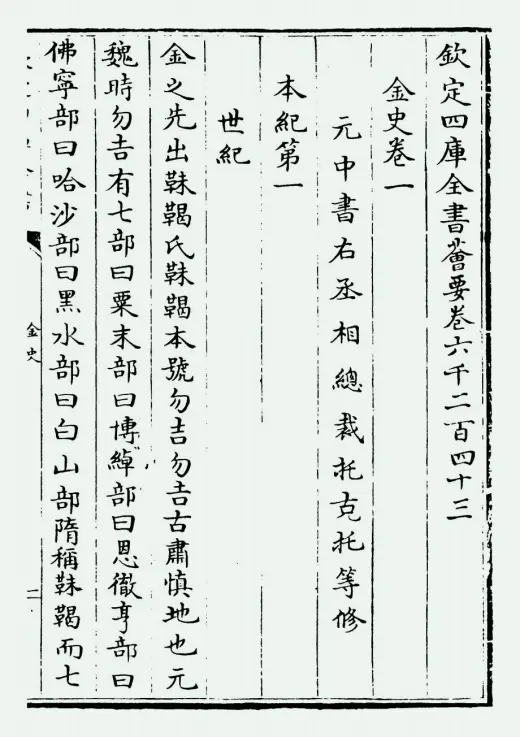 欽定四庫全書薈要卷六千二百四十三
金史卷一
元中書右丞相總裁托克托等修
本紀第一
世紀
金之先出靺鞨氏靺鞨本號勿吉勿吉古肅慎地也元
魏時勿吉有七部曰粟末部曰博綽部曰恩徹亨部曰
佛寧部曰哈沙部曰黑水部曰白山部隋稱靺鞨而七
金史
二